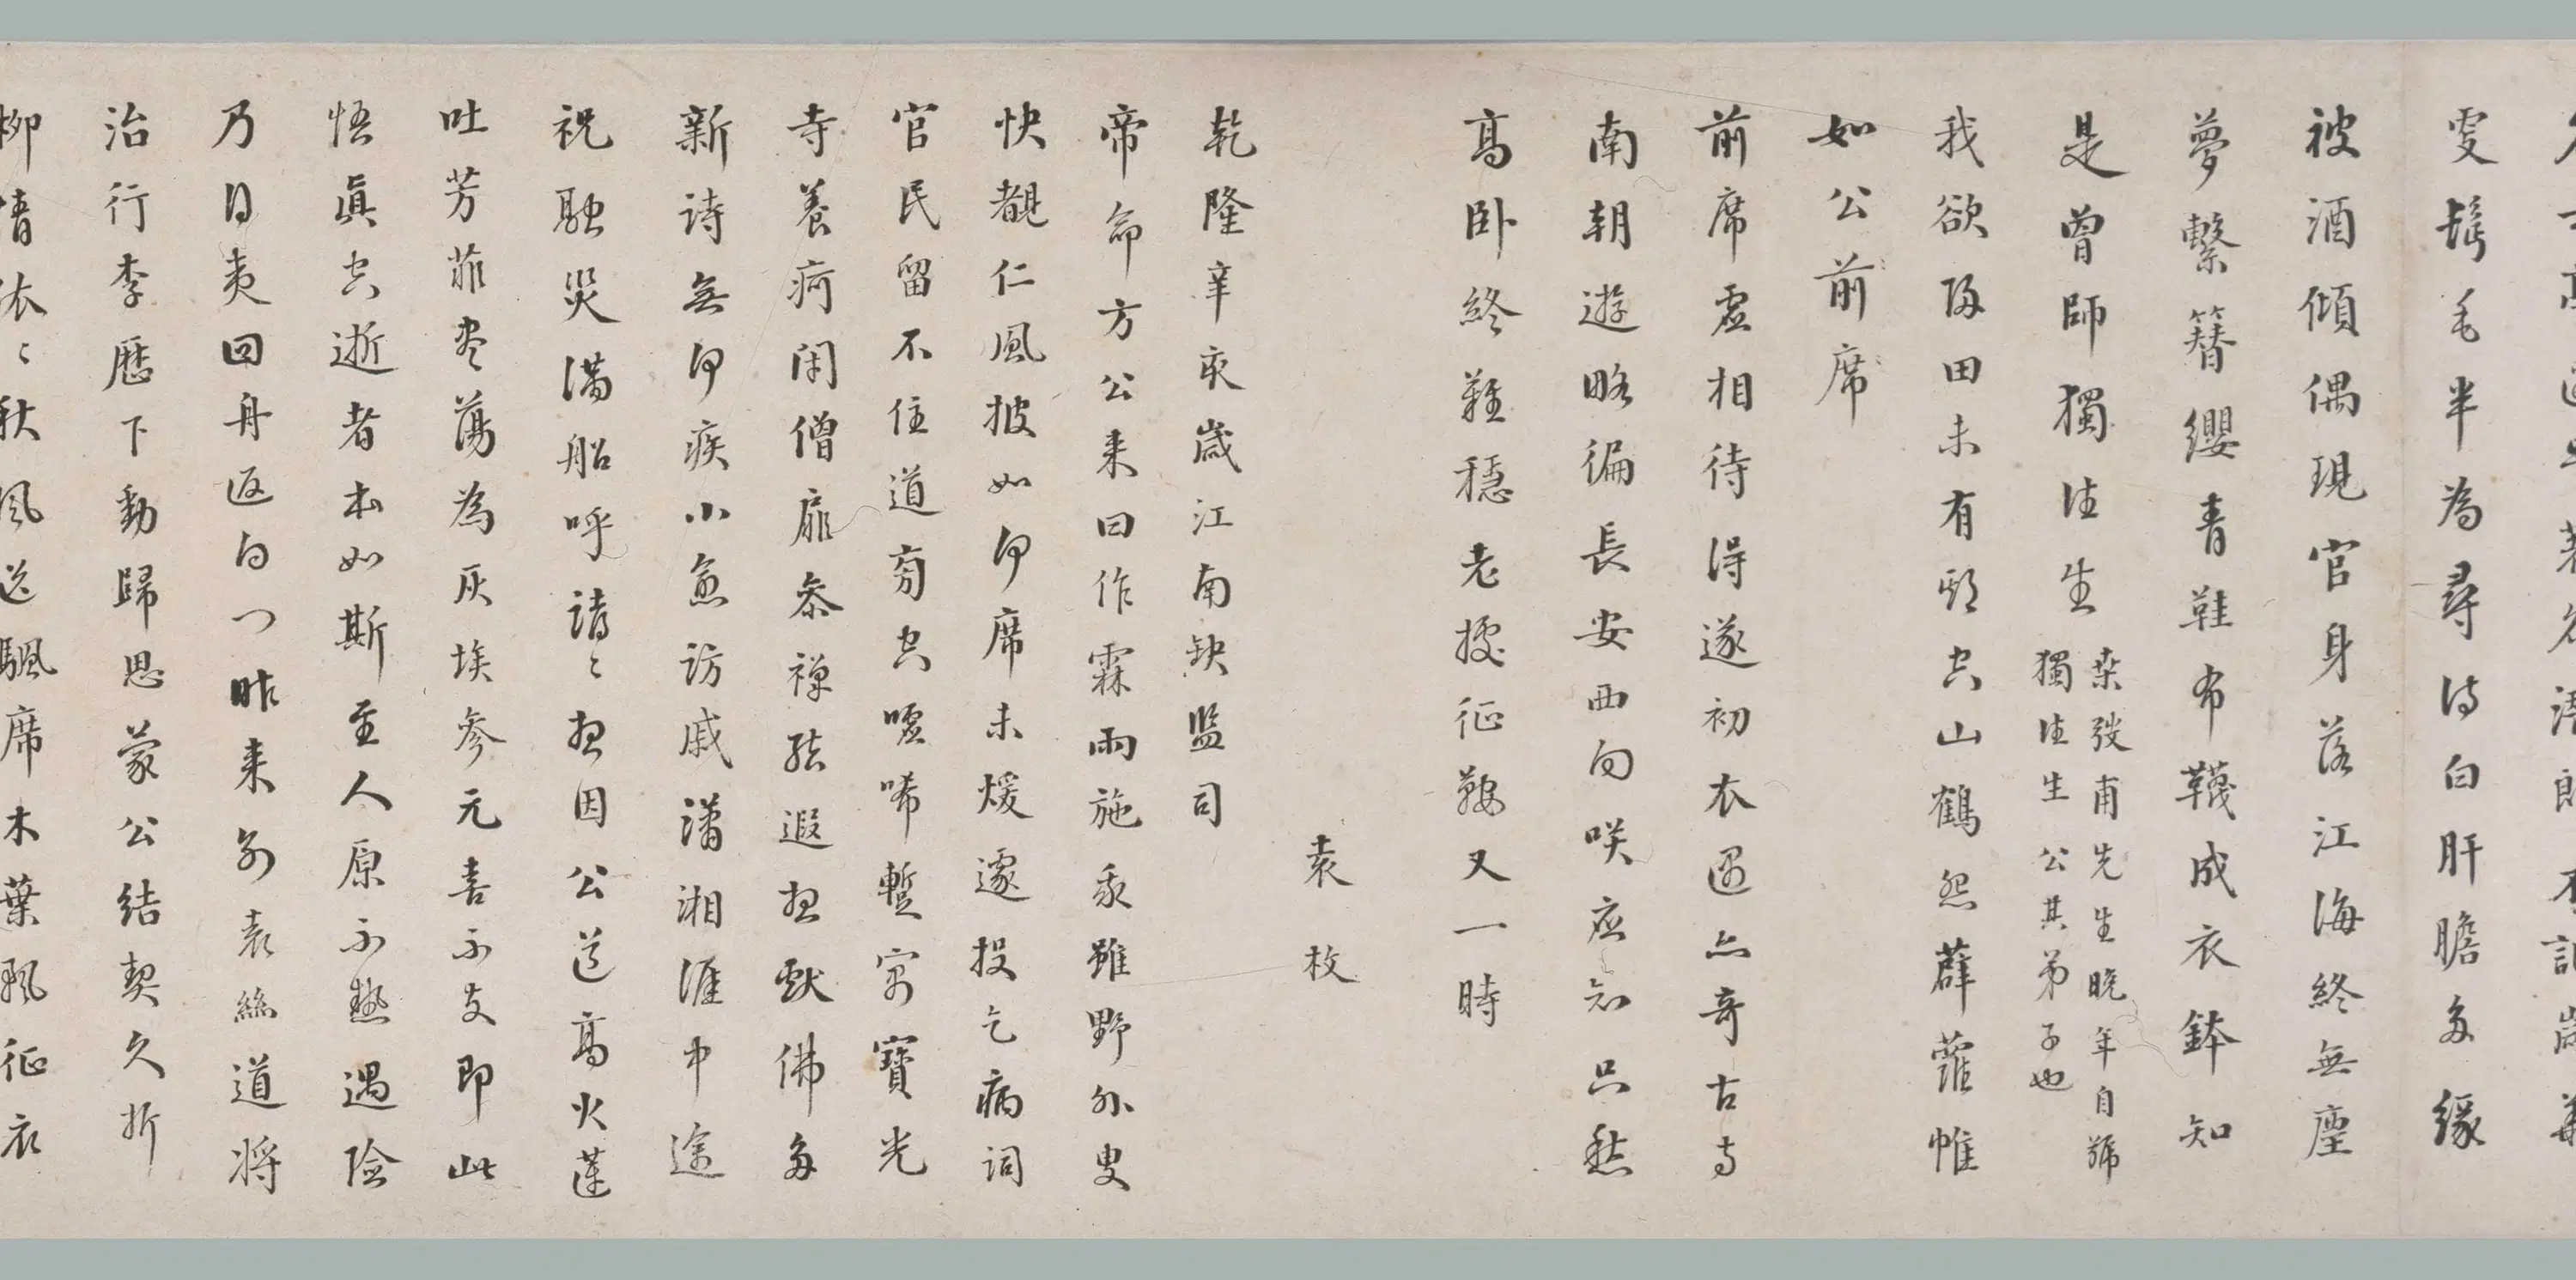 雯鬢毛半為尋詩白肝膽多緣
被酒傾偶現官身落江海終無塵
夢繫簪纓青鞋布韈成衣鉢知
是曾師獨往生
桑弢甫先生晚年自號
獨往生公其弟子也
我欲歸田未有期空山鶴怨薜蘿帷
如公前席
前席虛相待得遂初衣遇亦奇古寺
南朝遊略徧長安西向咲應知只愁
高卧終難穩老據征鞍又一時
袁枚
乾隆辛亥歲江南缺監司
帝命方公来曰作霖雨施我雖野外叟
快覩仁風披如何席未煖遽投乞病詞
官民留不住道旁空噓唏暫寓寶光
寺養疴閑僧扉參禪結遐想獻佛多
新詩無何疾小愈訪戚瀟湘涯中途
祝融災滿船呼譆〻想因公道高火蓮
吐芳菲盡蕩為灰埃參元喜不支即此
悟真空逝者本如斯至人原不熱遇險
乃曰夷回舟返白門昨来別袁絲道將
治行李歷下動歸思蒙公結契久折
柳情依〻秋風送颿席木葉飄征衣